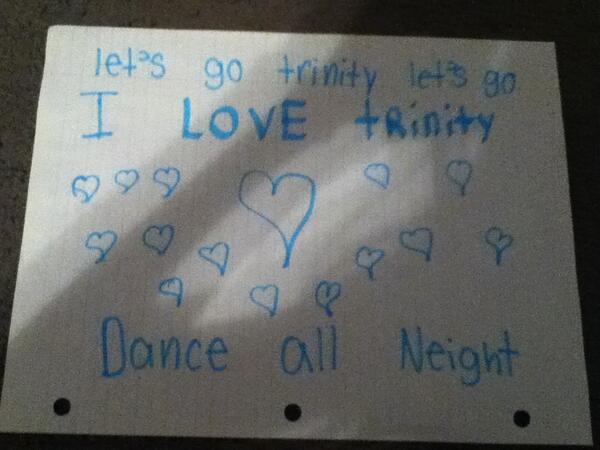 let's go trinity let's go
I LOVE tRinity
Dance all Neight